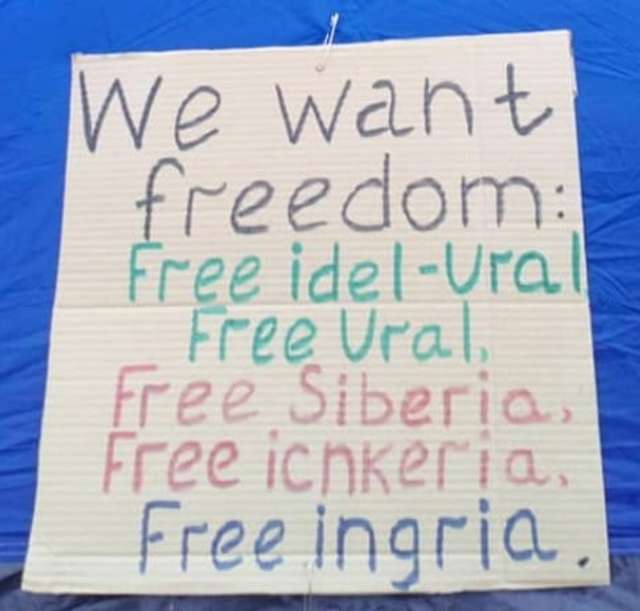 We want
freedom:
Free idel-Ural
Free Ural,
Free Siberia,
Free icnkeria,
Free ingria.